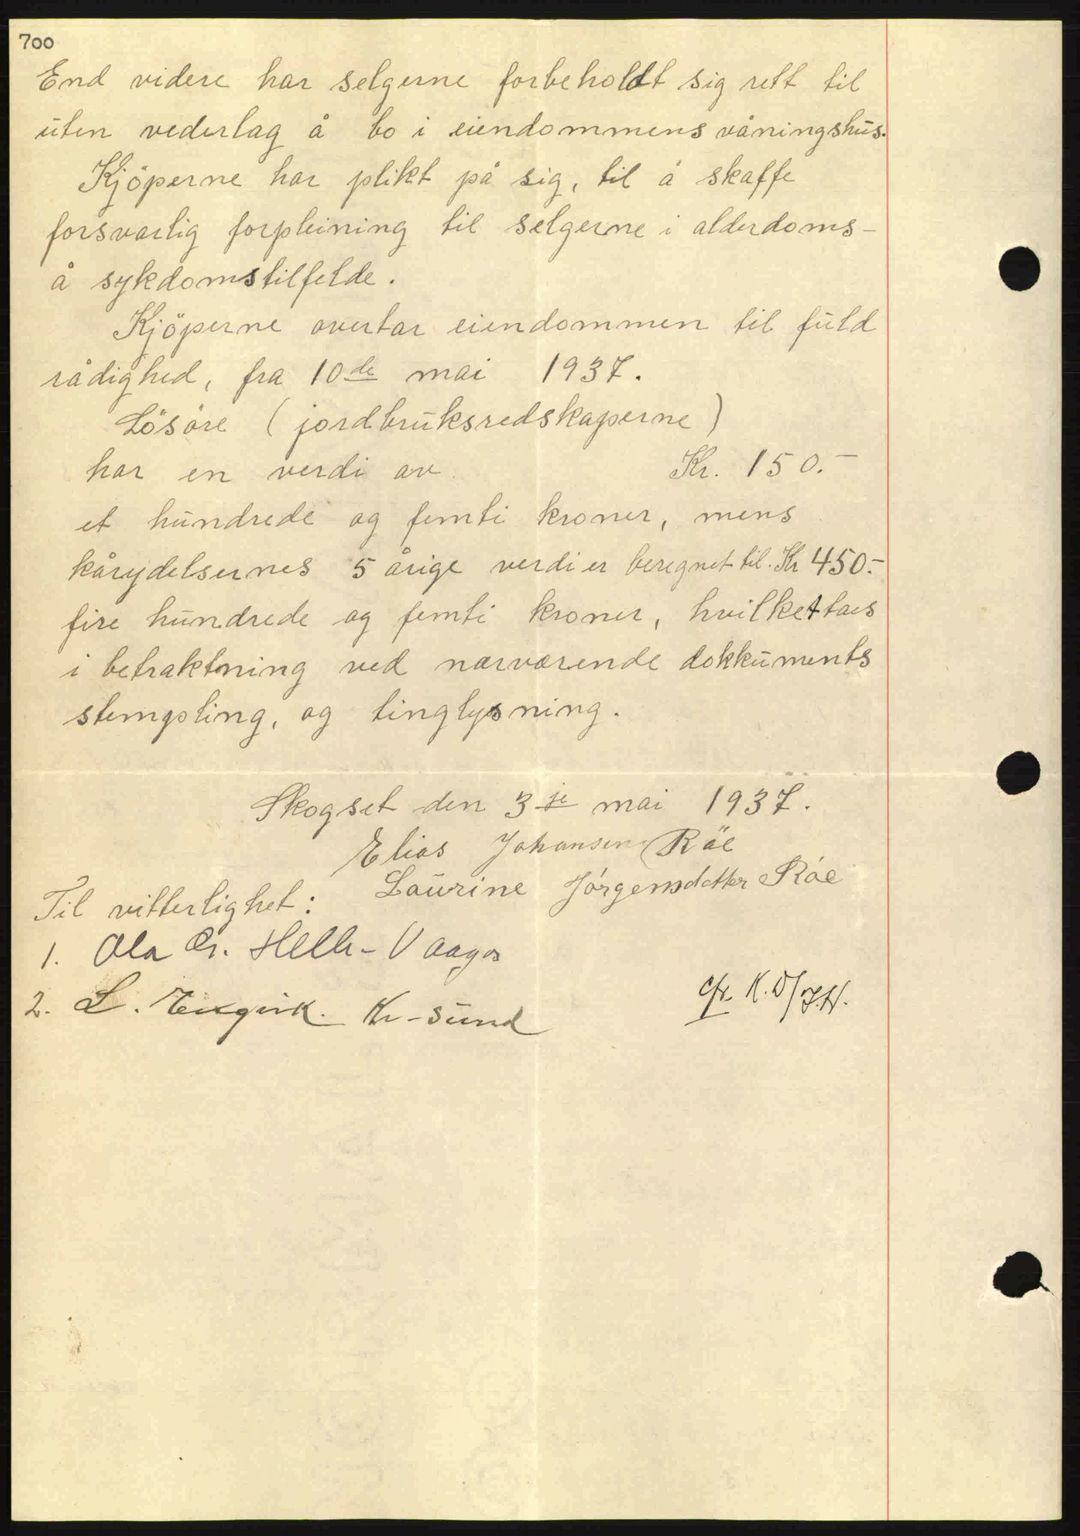 700
End videre har selgerne forbeholdt sig rett til
uten vederlag å bo i eiendommens våningshus.
Kjöperne har plikt på sig, til å skaffe
forsvarlig forpleining til selgerne i alderdoms-
å sykdomstilfelde.
Kjöperne overtar eiendommen til fuld
rådighed, fra 10de mai 1937.
Lösöre (jordbruksredskaperne)
har en verdi av Kr. 150.-
et hundrede og femti kroner, mens
kårydelsernes 5 årige verdi er beregnet til Kr 450.-
fire hundrede og femti kroner, hvilket taes
i betraktning ved nærværende dokkuments
stempling, og tinglysning.
Skogset den 3je mai 1937.
Elias Johansen Röe
Laurine Jörgensdatter Röe
Til vitterlighet:
1. Ola Chr. Helle - Vaagos
2. L. Kr-sund
K.D/J.N.